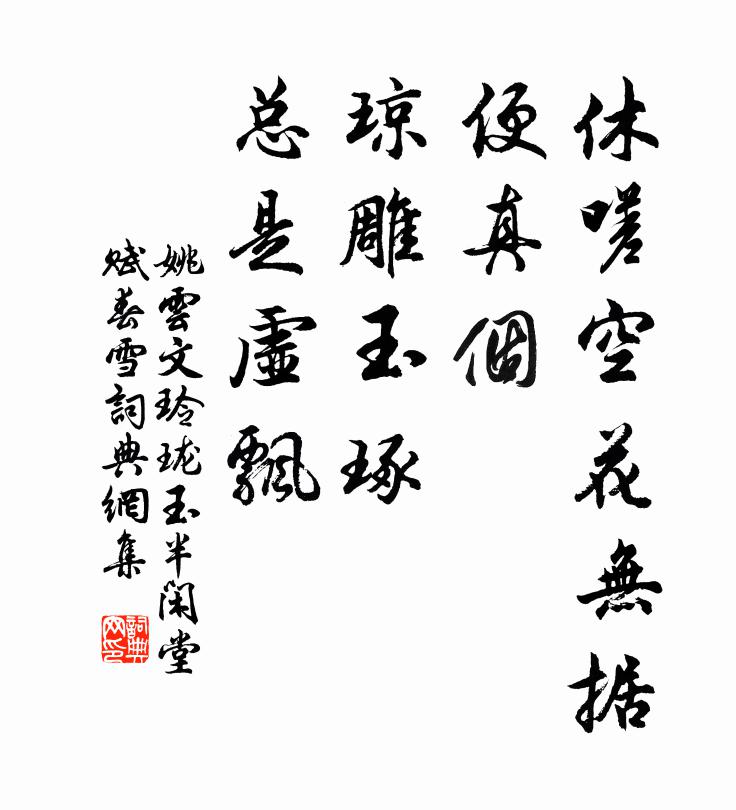 休嗟空花無据
便真個
琼雕玉琢
总是虛飄
姚雲文玲珑玉半閑堂
賦春雪詞典網集
詞典
网印